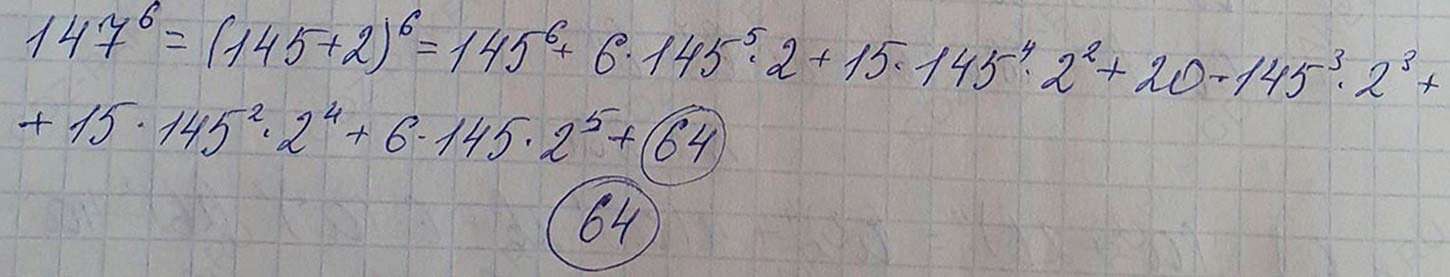 147⁶ = (145+2)⁶ = 145⁶ + 6·145⁵·2 + 15·145⁴·2² + 20·145³·2³ +
+ 15·145²·2⁴ + 6·145·2⁵ + 64
64